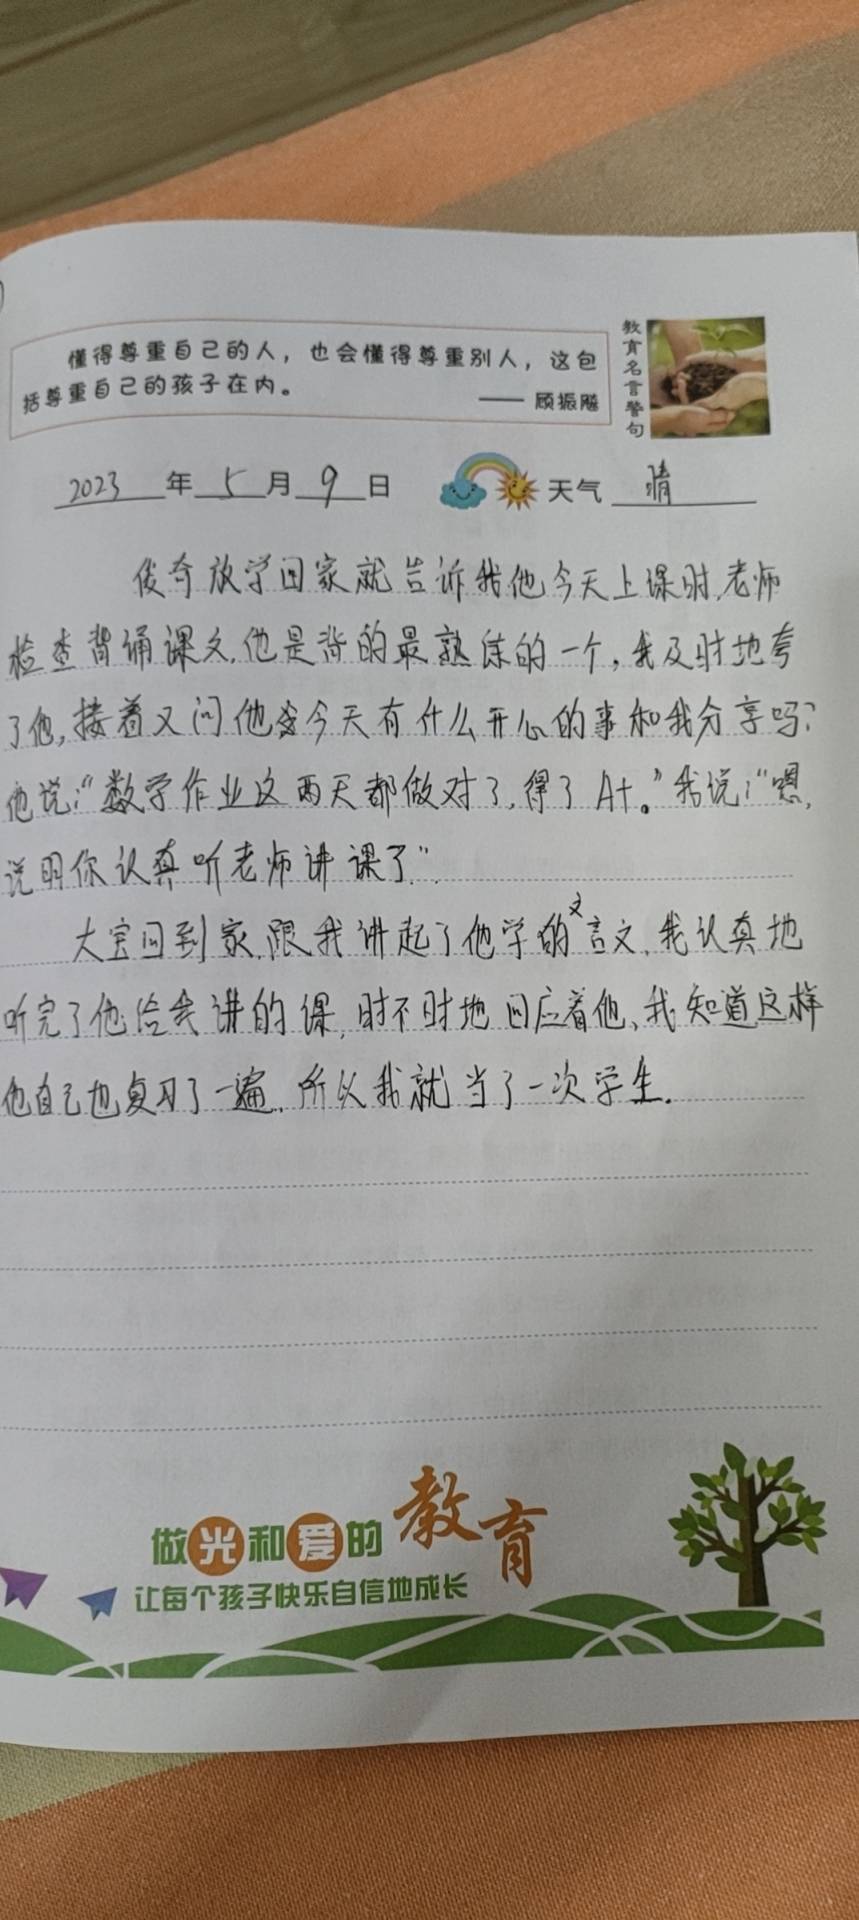 懂得尊重自己的人，也会懂得尊重别人，这包
括尊重自己的孩子在内。
—— 顾振飚
教育名言警句
2023年5月9日 天气 晴
俊奇放学回家就告诉我他今天上课时,老师
检查背诵课文,他是背的最熟练的一个,我及时地夸
了他,接着又问他今天有什么开心的事和我分享吗?
他说:“数学作业这两天都做对了,得了A+。”我说:“嗯,
说明你认真听老师讲课了”.
大宝回到家,跟我讲起了他学的文言文,我认真地
听完了他给我讲的课,时不时地回应着他、我知道这样
他自己也复习了一遍,所以我就当了一次学生.
做光和爱的教育
让每个孩子快乐自信地成长